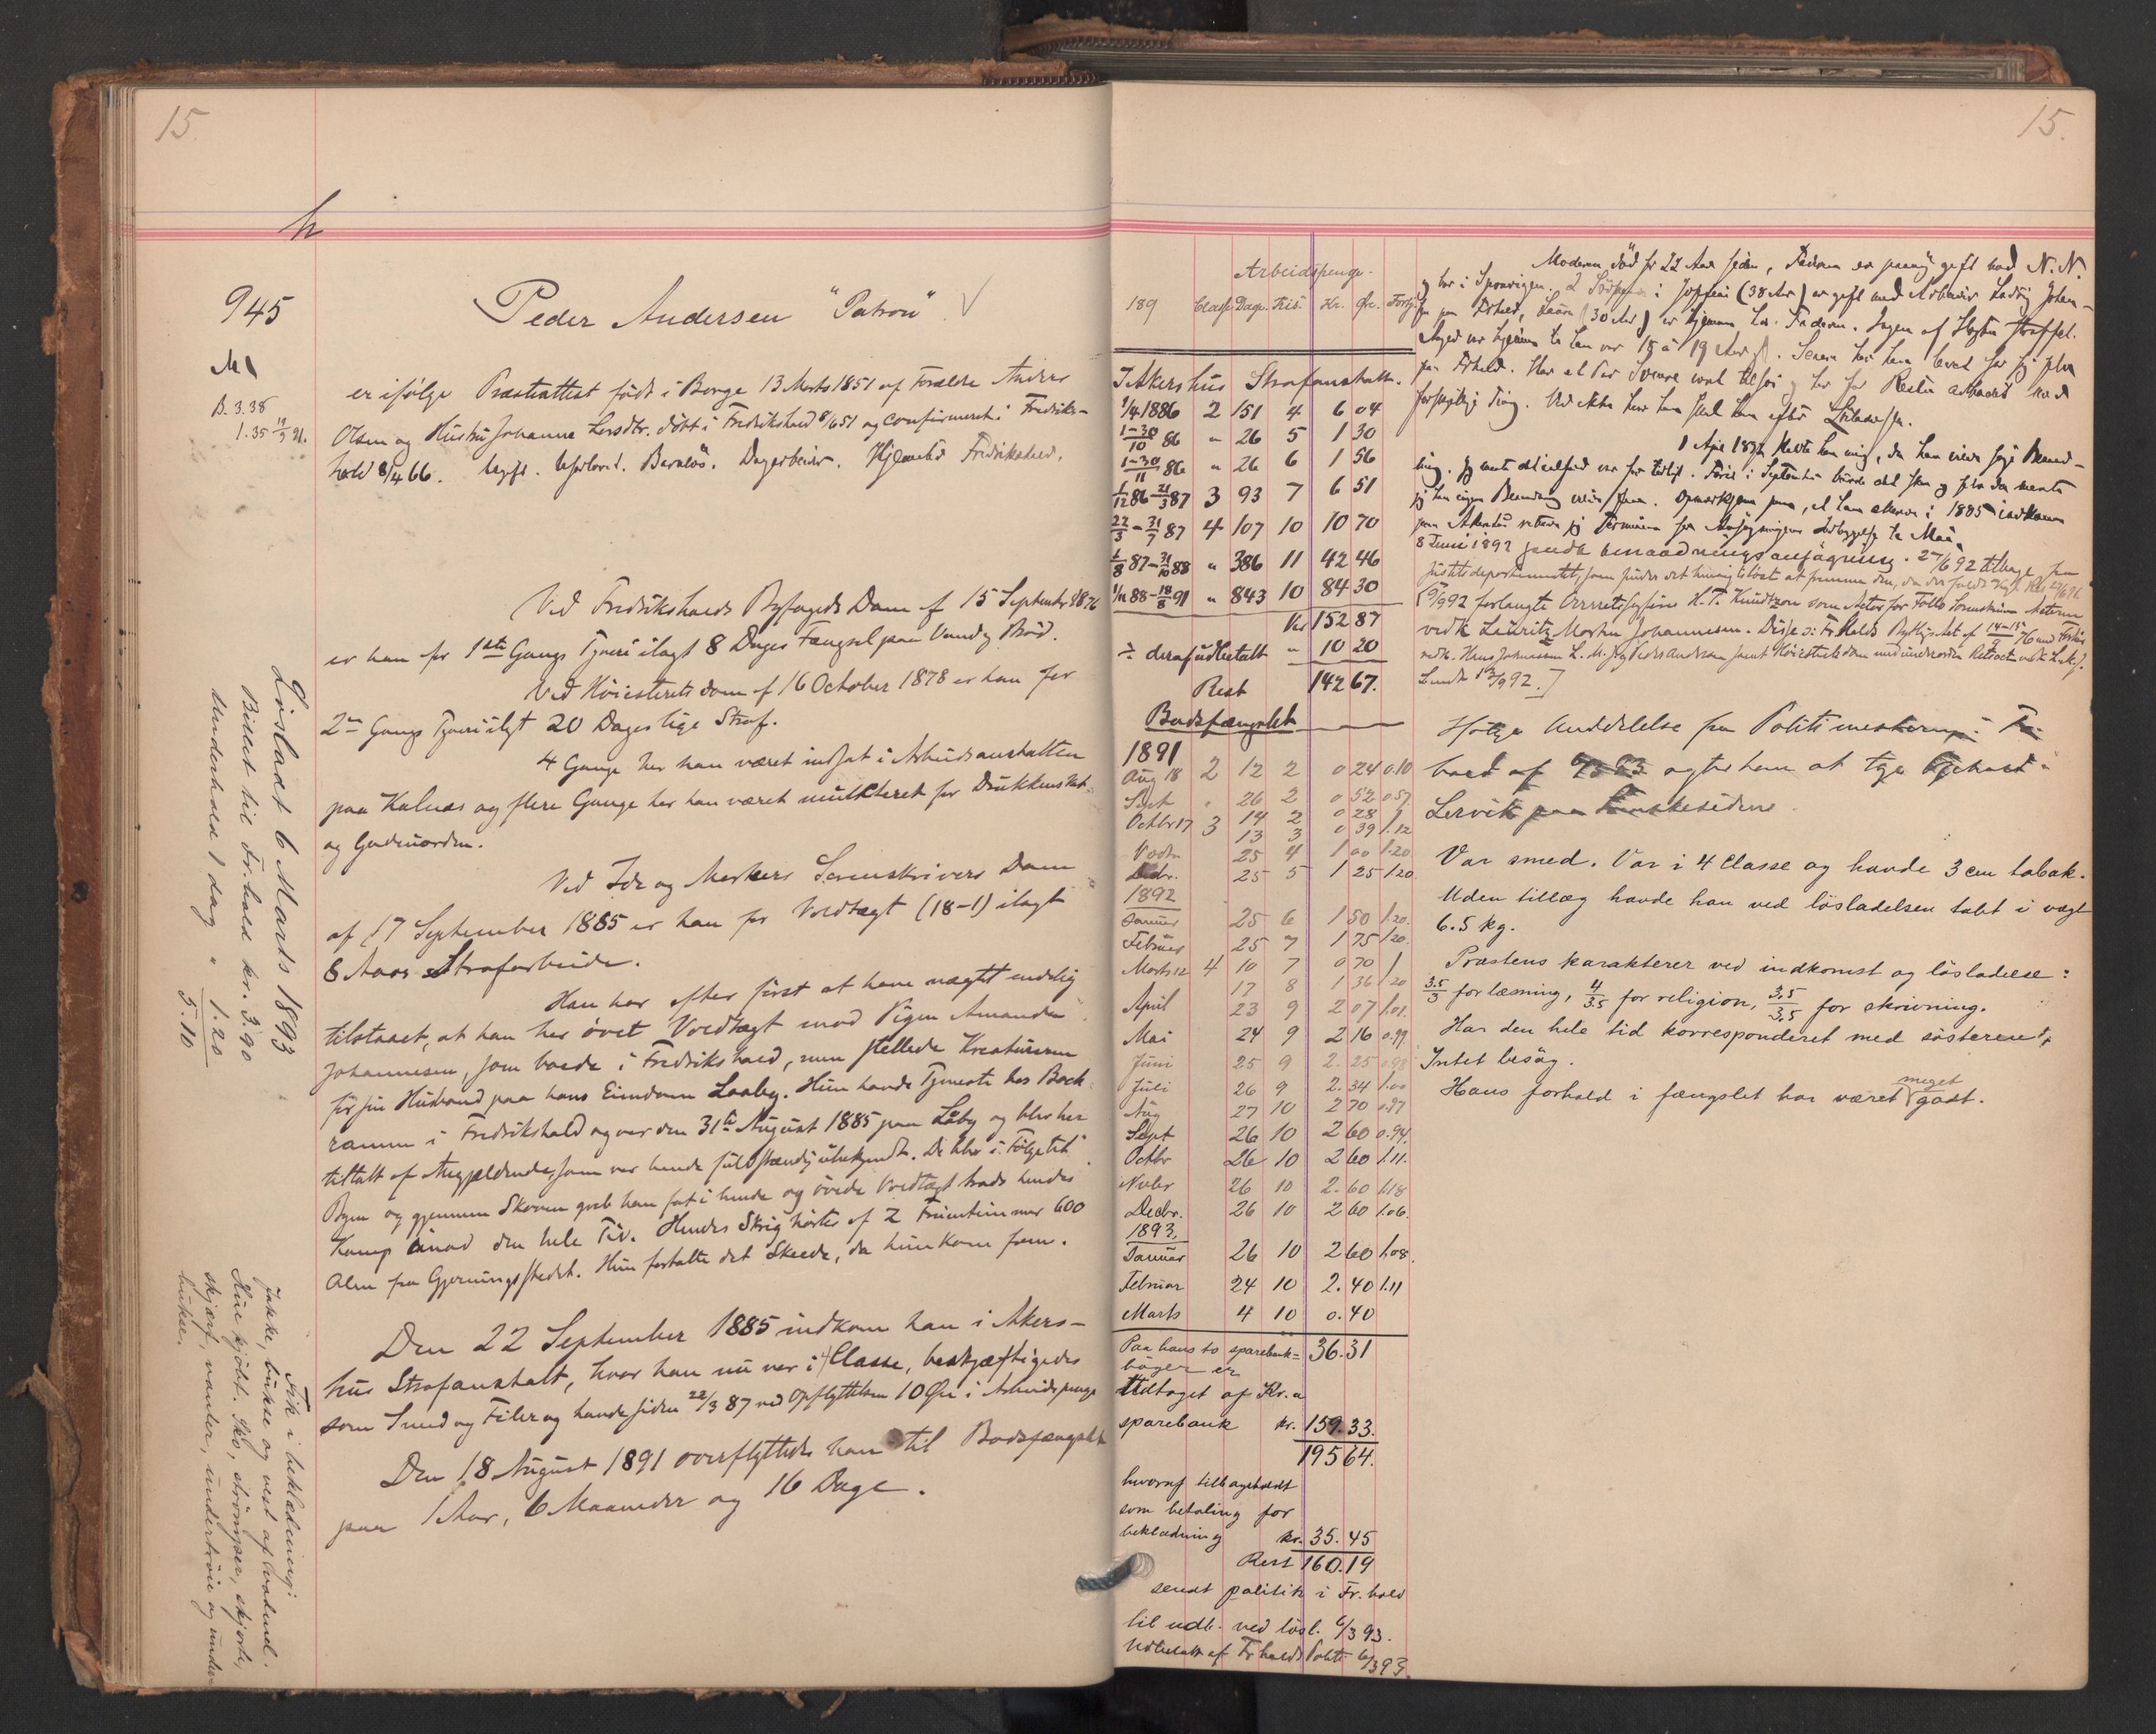 15
h
945
B. 3.38
1.35 19/9 91.
Peder Andersen "Patron"
er ifølge Præsteattest født i Borge 13 Marts 1851 af Forældre Anders
Olsen og Hustru Johanne Larsdtr. døbt i Fredrikshald 8/6 51 og confirmeret i Fredriks-
hald 8/4 66. Ugift. Uforlovet. Barnløs. Dagarbeider. Hjemsted Fredrikshald.
Ved Fredrikshalds Byfogeds Dom af 15 September 1876
er han for 1ste Gangs Tyveri ilagt 8 Dages Fængsel paa Vand og Brød.
Ved Høiesterets dom af 16 October 1878 er han for
2en Gangs Tyveri ilagt 20 Dages lige Straf.
4 Gange har han været indsat i Arbeidsanstalten
paa Kalnæs og flere Gange har han været mulkteret for Drukkenskab
og Gadeuorden.
Ved Idd og Markers Sorenskrivers Dom
af 17 September 1885 er han for Voldtægt (18-1) ilagt
8 Aars Strafarbeide.
Han har efter først at have nægtet endelig
tilstaaet, at han har øvet Voldtægt mod Pigen Amanda
Johannesen, som boede i Fredrikshald, men stellede Kreaturerne
for sin Husbond paa hans Eiendom Laaby. Hun havde Tjeneste hos Back
ramm i Fredrikshald og var den 31te August 1885 paa Låby og blev her
tiltalt af Angjældende, som var hende fuldstændig ubekjendt. De blev i Følge til
Byen og gjennem Skoven greb han fat i hende og øvede Voldtægt trods hendes
Kamp imod den hele Tid. Hendes Skrig hørtes af 2 Fruentimmer 600
Alen fra Gjerningsstedet. Hun fortalte det Skeede, da hun kom frem.
Den 22 September 1885 indkom han i Akers-
hus Strafanstalt, hvor han nu var i 4 Classe, beskjæftigedes
som Smed og Filer og havde siden 22/3 87 ved Opflyttelsen 10 Øre i Arbeidspenge
Den 18 August 1891 overflyttedes han til Bodsfængslet
paa 1 Aar, 6 Maaneder og 16 Dage.
Løsladt 6 Marts 1893
Billet til Fr.hald kr. 3.90
Underhold 1 dag " 1.20
5.10
Fik i beklædning:
Jakke, bukse og vest af vadmel.
Hue kjøbt. Sko, strømper, skjorte,
skjærf, vanter, undertrøie og under-
bukse.
15.
Arbeidspenge.
189 Classe Dage Kr. Øre.
I Akershus Strafanstalt.
1/4 1886 2 151 4 6 04
1-30/10 86 " 26 5 1 30
1-30/11 86 " 26 6 1 56
1/12 86-21/3 87 3 93 7 6 51
22/3-31/7 87 4 107 10 10 70
1/8 87-31/10 88 " 386 11 42 46
1/11 88-18/8 91 " 843 10 84 30
Kr 152 87
÷ deraf udbetalt " 10 20
Rest 142 67.
Bodsfængslet
1891
Aug 18 2 12 2 0 24 0.10
Sept " 26 2 0 52 0.57
Octbr 17 3 14 2 0 28 1
13 3 0 39 1.12
25 4 1 00 1.20
Decbr. 25 5 1 25 1.20
1892
Januar 25 6 1 50 1.20.
Februar 25 7 1 75 1.20.
Marts 12 4 10 7 0 70 1
17 8 1 36 1.20
April 23 9 2 07 1.01.
Mai 24 9 2 16 0.99
Juni 25 9 2.25 0.98
Juli 26 9 2.34 1.00
Aug 27 10 2 70 0.97
Sept 26 10 2 60 0.94.
Octbr 26 10 2 60 1.11.
Novbr 26 10 2.60 1.18
Decbr. 26 10 2 60 1.06.
1893.
Januar 26 10 2 60 1.08.
Februar 24 10 2.40 1.11
Marts 4 10 0.40
Paa hans to sparebank- 36.31
bøger er
Udtaget af Kr.a
sparebank kr. 159.33.
195 64.
hvoraf tilbageholdt
som betaling for
beklædning kr. 35.45
Rest 160.19
sendt politik i Fr.hald
til udb. ved løsl. 6/3 93.
Udbetalt af Fr.halds Politi 6/3 93.
Moderen død for 22 Aar siden, Faderen er paany gift med N.N.
og bor i Sponvigen. 2 Søstre Josefine (38 Aar) er gift med Arbeider Ludvig Johan-
paa Frhald, Laura (30 Aar) er hjemme hos Faderen. Ingen af Slægten straffet.
var hjemme til han var 18 à 19 Aar. Senere har han boet for sig selv
paa Frhald. Har et Par Somre været tilsøs og har for Resten arbeidet med
forskjellige Ting.
1 April 1892 kaldte han mig, da han vilde søge Benaad-
ning. Jeg mente det var for tidligt. Først i September burde det ske
8 Juni 1892 sendte benaadningsansøgning. 27/6 92 tilbage fra
Justitsdepartementet
forlangte Overretssagfører K.T. Knudtzon som Actor for
vedk Lauritz Martin Johannesen.
Sendt
Ifølge Meddelelse fra Politimesteren i Fr.
hald af agter han at tage Ophold
Lervik paa
Var smed. Var i 4 Classe og havde 3 cm tobak.
Uden tillæg havde han ved løsladelsen tabt i vægt
6.5 kg.
Præstens karakterer ved indkomst og løsladelse:
3.5/3 for læsning, 4/3.5 for religion, 3.5/3.5 for skrivning.
Har den hele tid korresponderet med søsteren.
Intet besøg.
Hans forhold i fængslet har været meget godt.